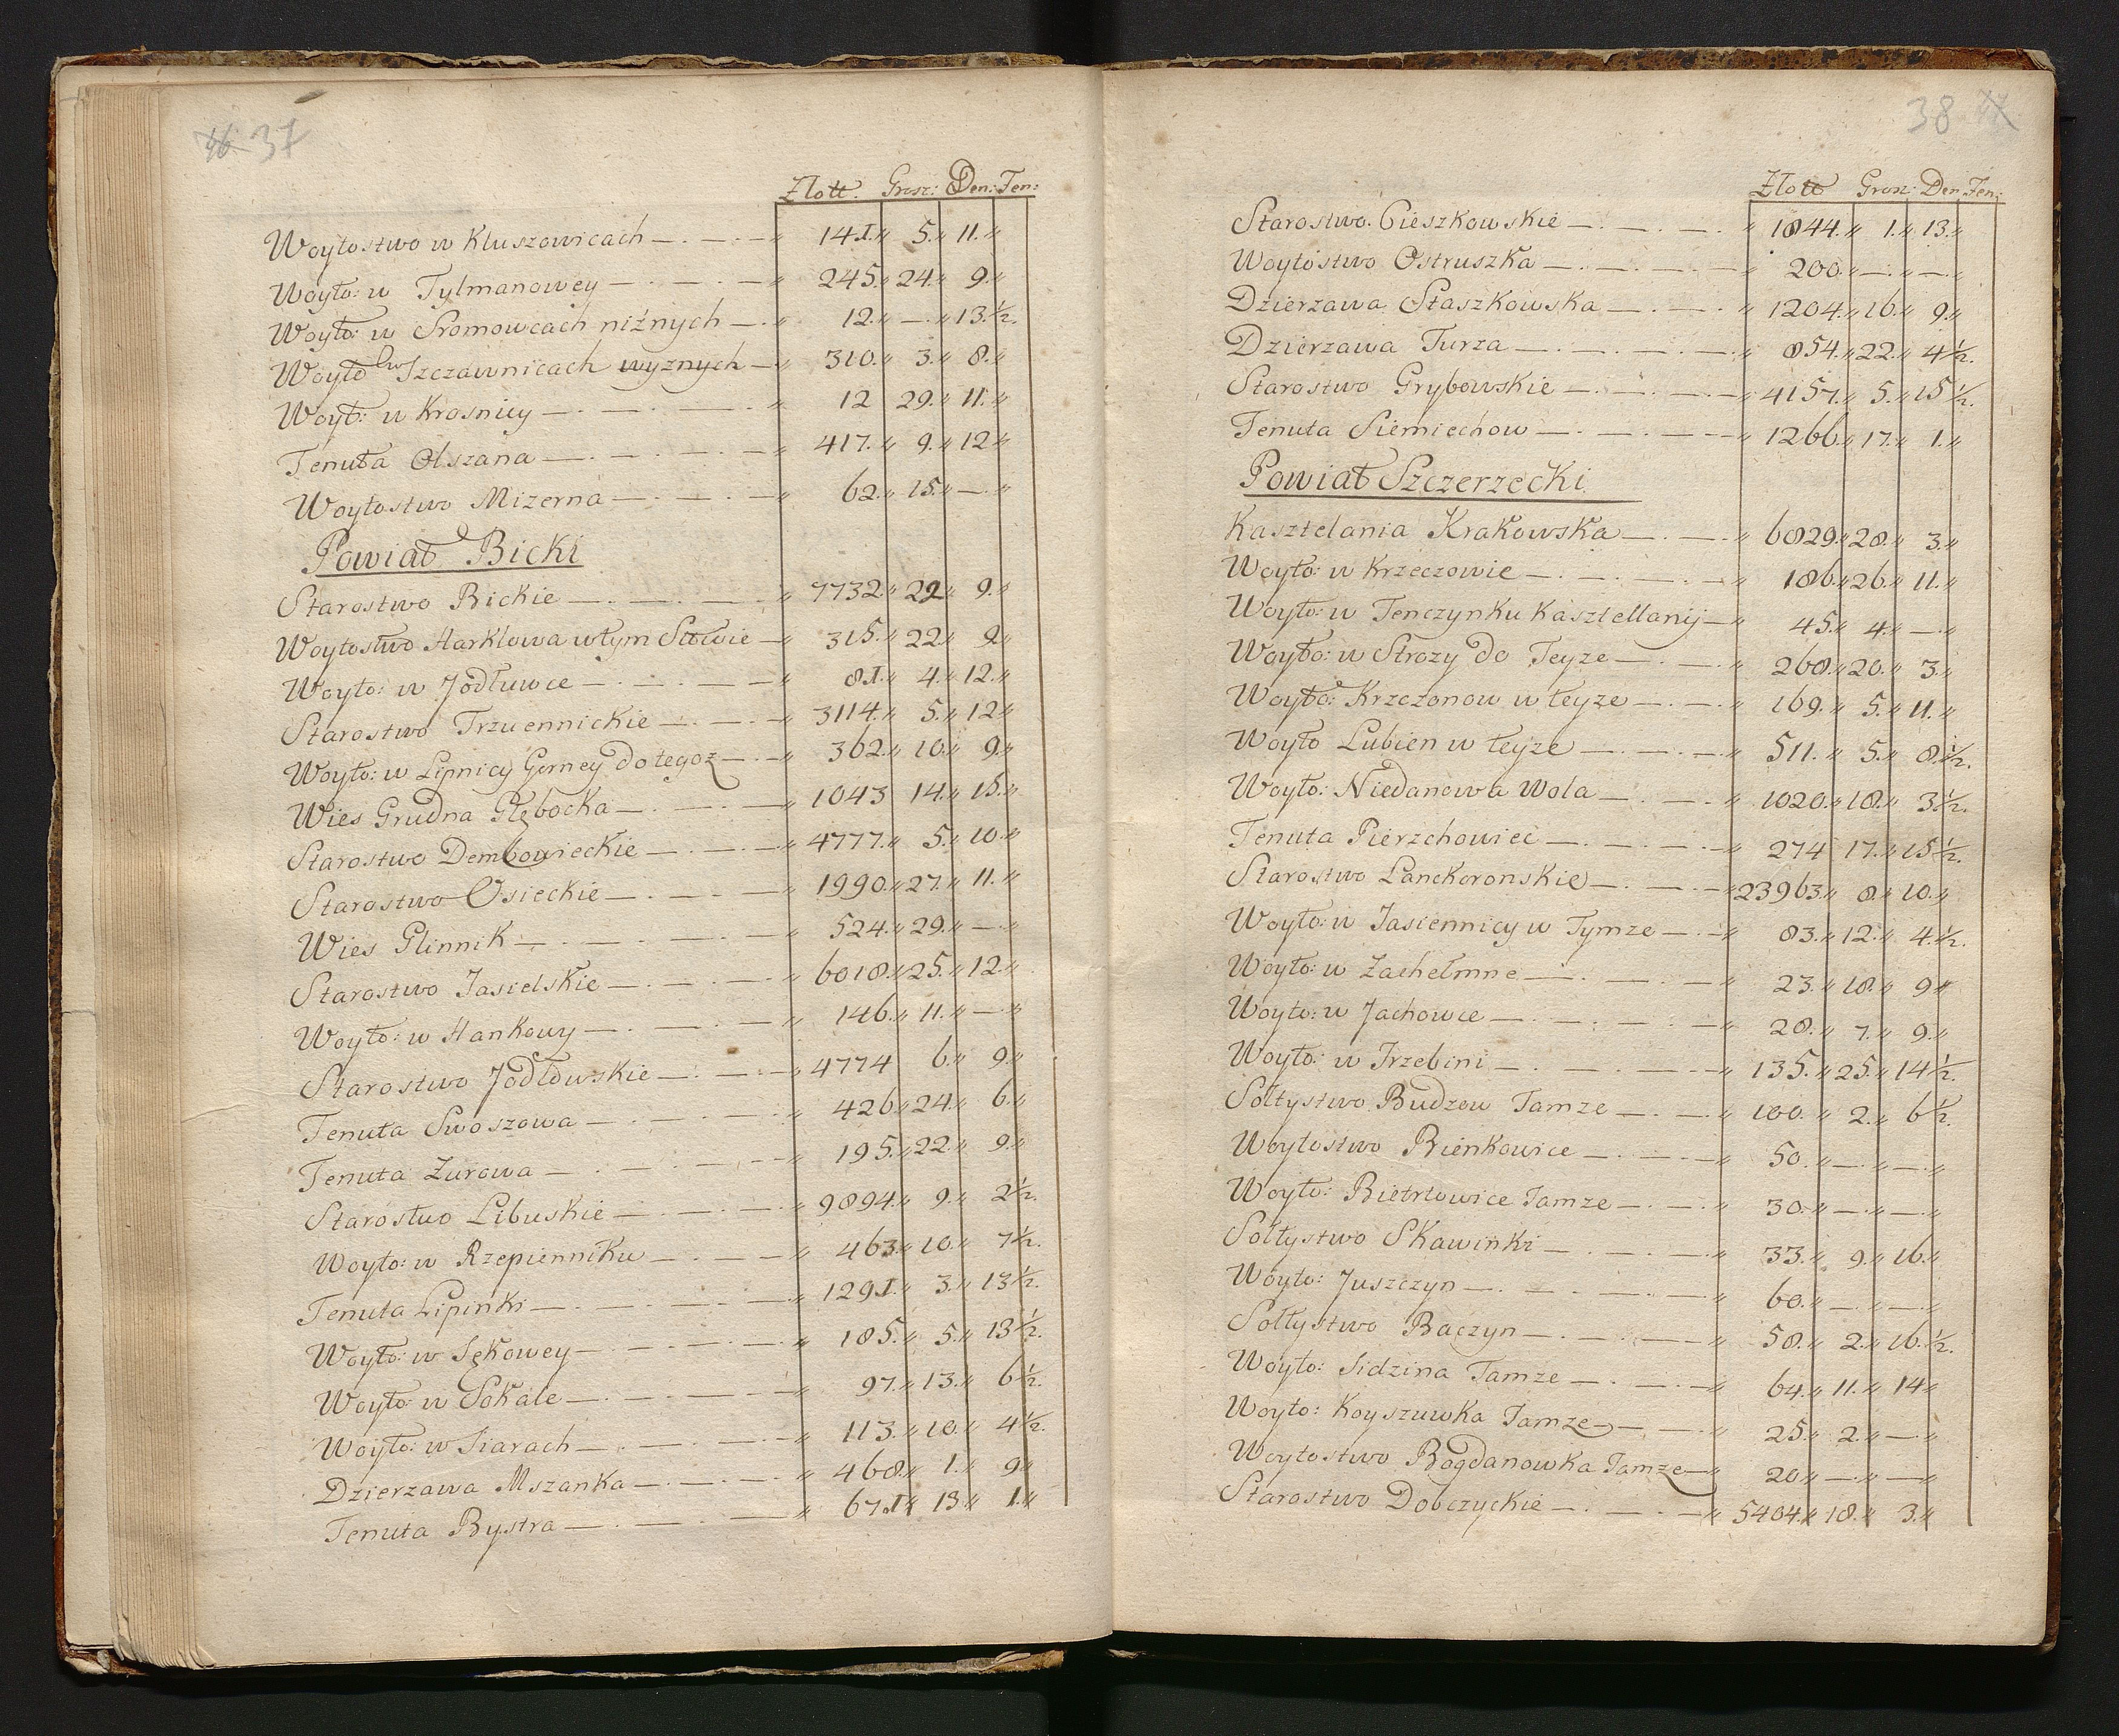 37
Złott. Grosz: Den: Ten:
Woytostwo w Kluszowicach — 141. 5. 11.
Woyto: w Tylmanowey — 245. 24. 9.
Woyto: w Sromowcach niżnych — 12. — 13.½.
Woyto w Szczawnicach wyznych — 310. 3. 8.
Woyt: w Krosnicy — 12 29. 11.
Tenuta Olszana — 417. 9. 12
Woytostwo Mizerna — 62. 15. —
Powiat Bicki
Starostwo Bickie — 7732. 29 9.
Woytostwo Harklowa w tym Sttwie — 315. 22 9
Woyto: w Jodłuwce — 81. 4. 12.
Starostwo Trzciennickie — 3114. 5. 12
Woyto: w Lipnicy Gorney do tegoz — 362. 10. 9.
Wies Grudna Głębocka — 1043 14. 15.
Starostwo Dembowieckie — 4777. 5. 10.
Starostwo Osieckie — 1990. 27. 11.
Wies Glinnik — 524. 29. —
Starostwo Jasielskie — 6018. 25. 12.
Woyto: w Hankowy — 146. 11. —
Starostwo Jodłowskie — 4774 6. 9.
Tenuta Swoszowa — 426. 24. 6.
Tenuta Zurowa — 195. 22. 9.
Starostwo Libuskie — 9894. 9. 2½.
Woyto: w Rzepienniku — 463. 10. 7½.
Tenuta Lipinki — 1291. 3. 13½.
Woyto: w Sękowey — 185. 5. 13½.
Woyto: w Sokale — 97. 13. 6½.
Woyto: w Siarach — 113. 10. 4½.
Dzierzawa Mszanka — 468. 1. 9
Tenuta Bystra — 671. 13. 1.
38
Złott Grosz: Den Ten:
Starostwo Cieszkowskie — 1844. 1. 13.
Woytostwo Ostruszka — 200. — —
Dzierzawa Staszkowska — 1204. 16. 9.
Dzierzawa Turza — 854. 22. 4½.
Starostwo Grybowskie — 4157. 5. 15½.
Tenuta Siemiechow — 1266. 17. 1.
Powiat Szczerzecki
Kasztelania Krakowska — 6829. 28. 3.
Woyto: w Krzeczowie — 186. 26. 11.
Woyto: w Tenczynku Kasztellanij — 45. 4. —
Woyto: w Strozy do Teyze — 268. 20. 3.
Woyto: Krzczonow w teyze — 169. 5. 11.
Woyto Lubien w teyze — 511. 5. 8.½.
Woyto: Niedanowa Wola — 1020. 18. 3½.
Tenuta Pierzchowiec — 274 17. 15½.
Starostwo Lanckoronskie — 23963. 8. 10.
Woyto: w Jasiennicy w Tymze — 83. 12. 4.½.
Woyto: w Zachełmne — 23. 18. 9
Woyto: w Jachowce — 28. 7. 9.
Woyto: w Trzebini — 135. 25. 14½.
Sołtystwo Budzow Tamze — 100. 2. 6½.
Woytostwo Bienkowice — 50. — —
Woyto: Bietrtowice Tamze — 30. — —
Sołtystwo Skawinki — 33. 9. 16.
Woyto: Juszczyn — 60. — —
Sołtystwo Baczyn — 58. 2. 16.½.
Woyto: Sidzina Tamze — 64. 11. 14
Woyto: Koyszuwka Tamze — 25. 2. —
Woytostwo Bogdanowka Tamze — 20 — —
Starostwo Dobczyckie — 5404. 18. 3.